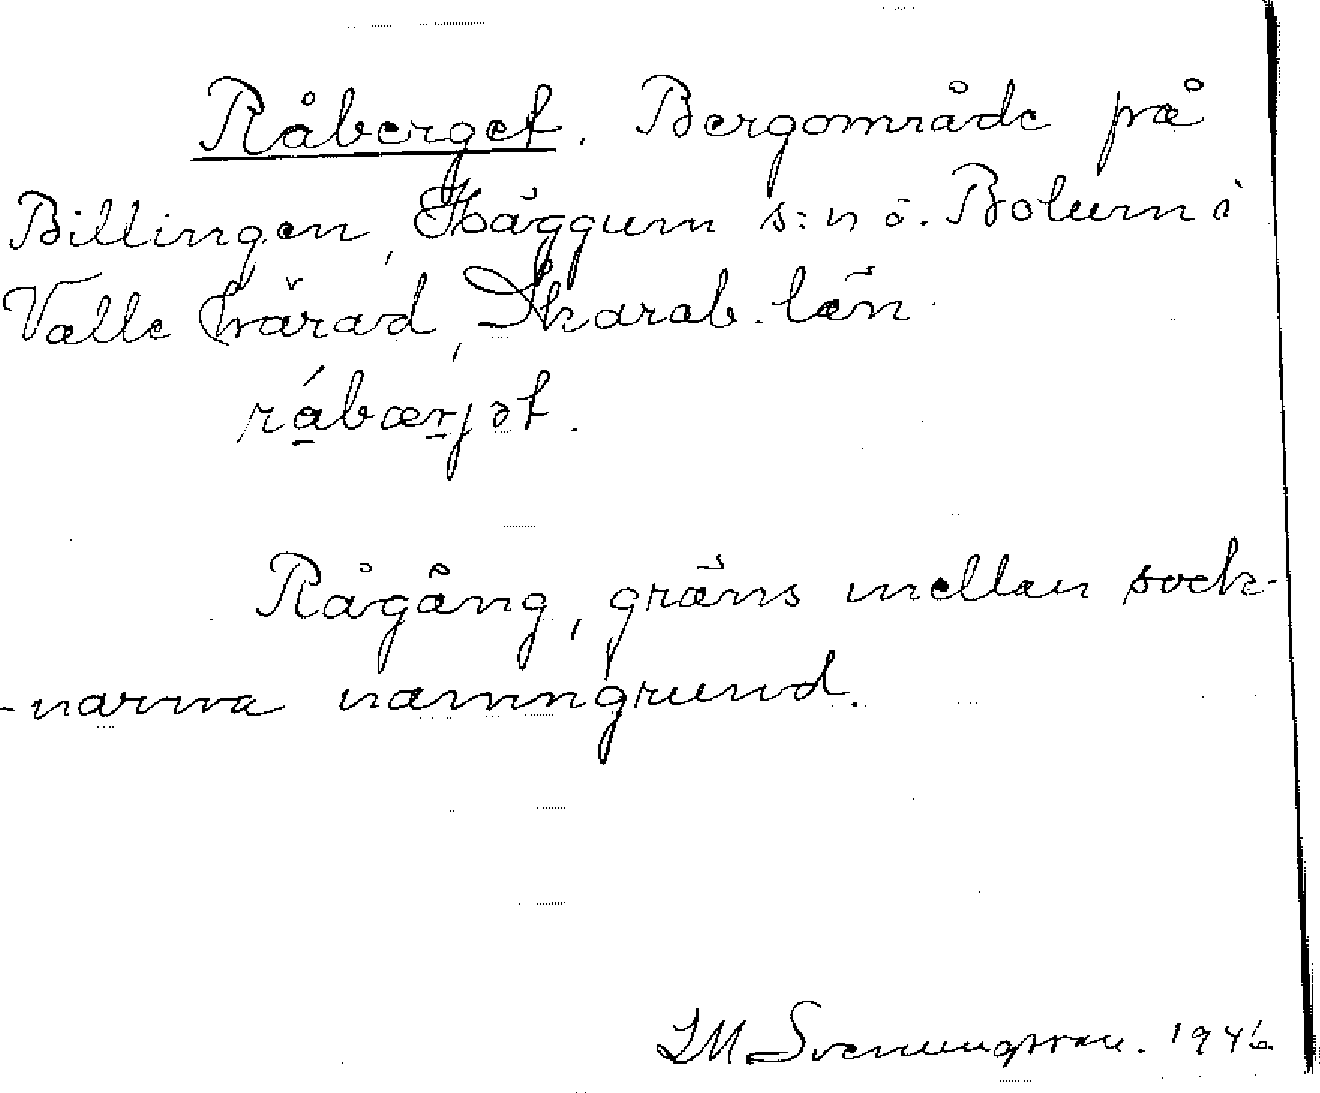 Råberget. Bergområde på
Billingen, Häggum s:n ö. Bolum i
Valle härad, Skarab. län.
råbærjət.
Rågång, gräns mellan sock-
-narna namngrund.
LM Svenungsson. 1946